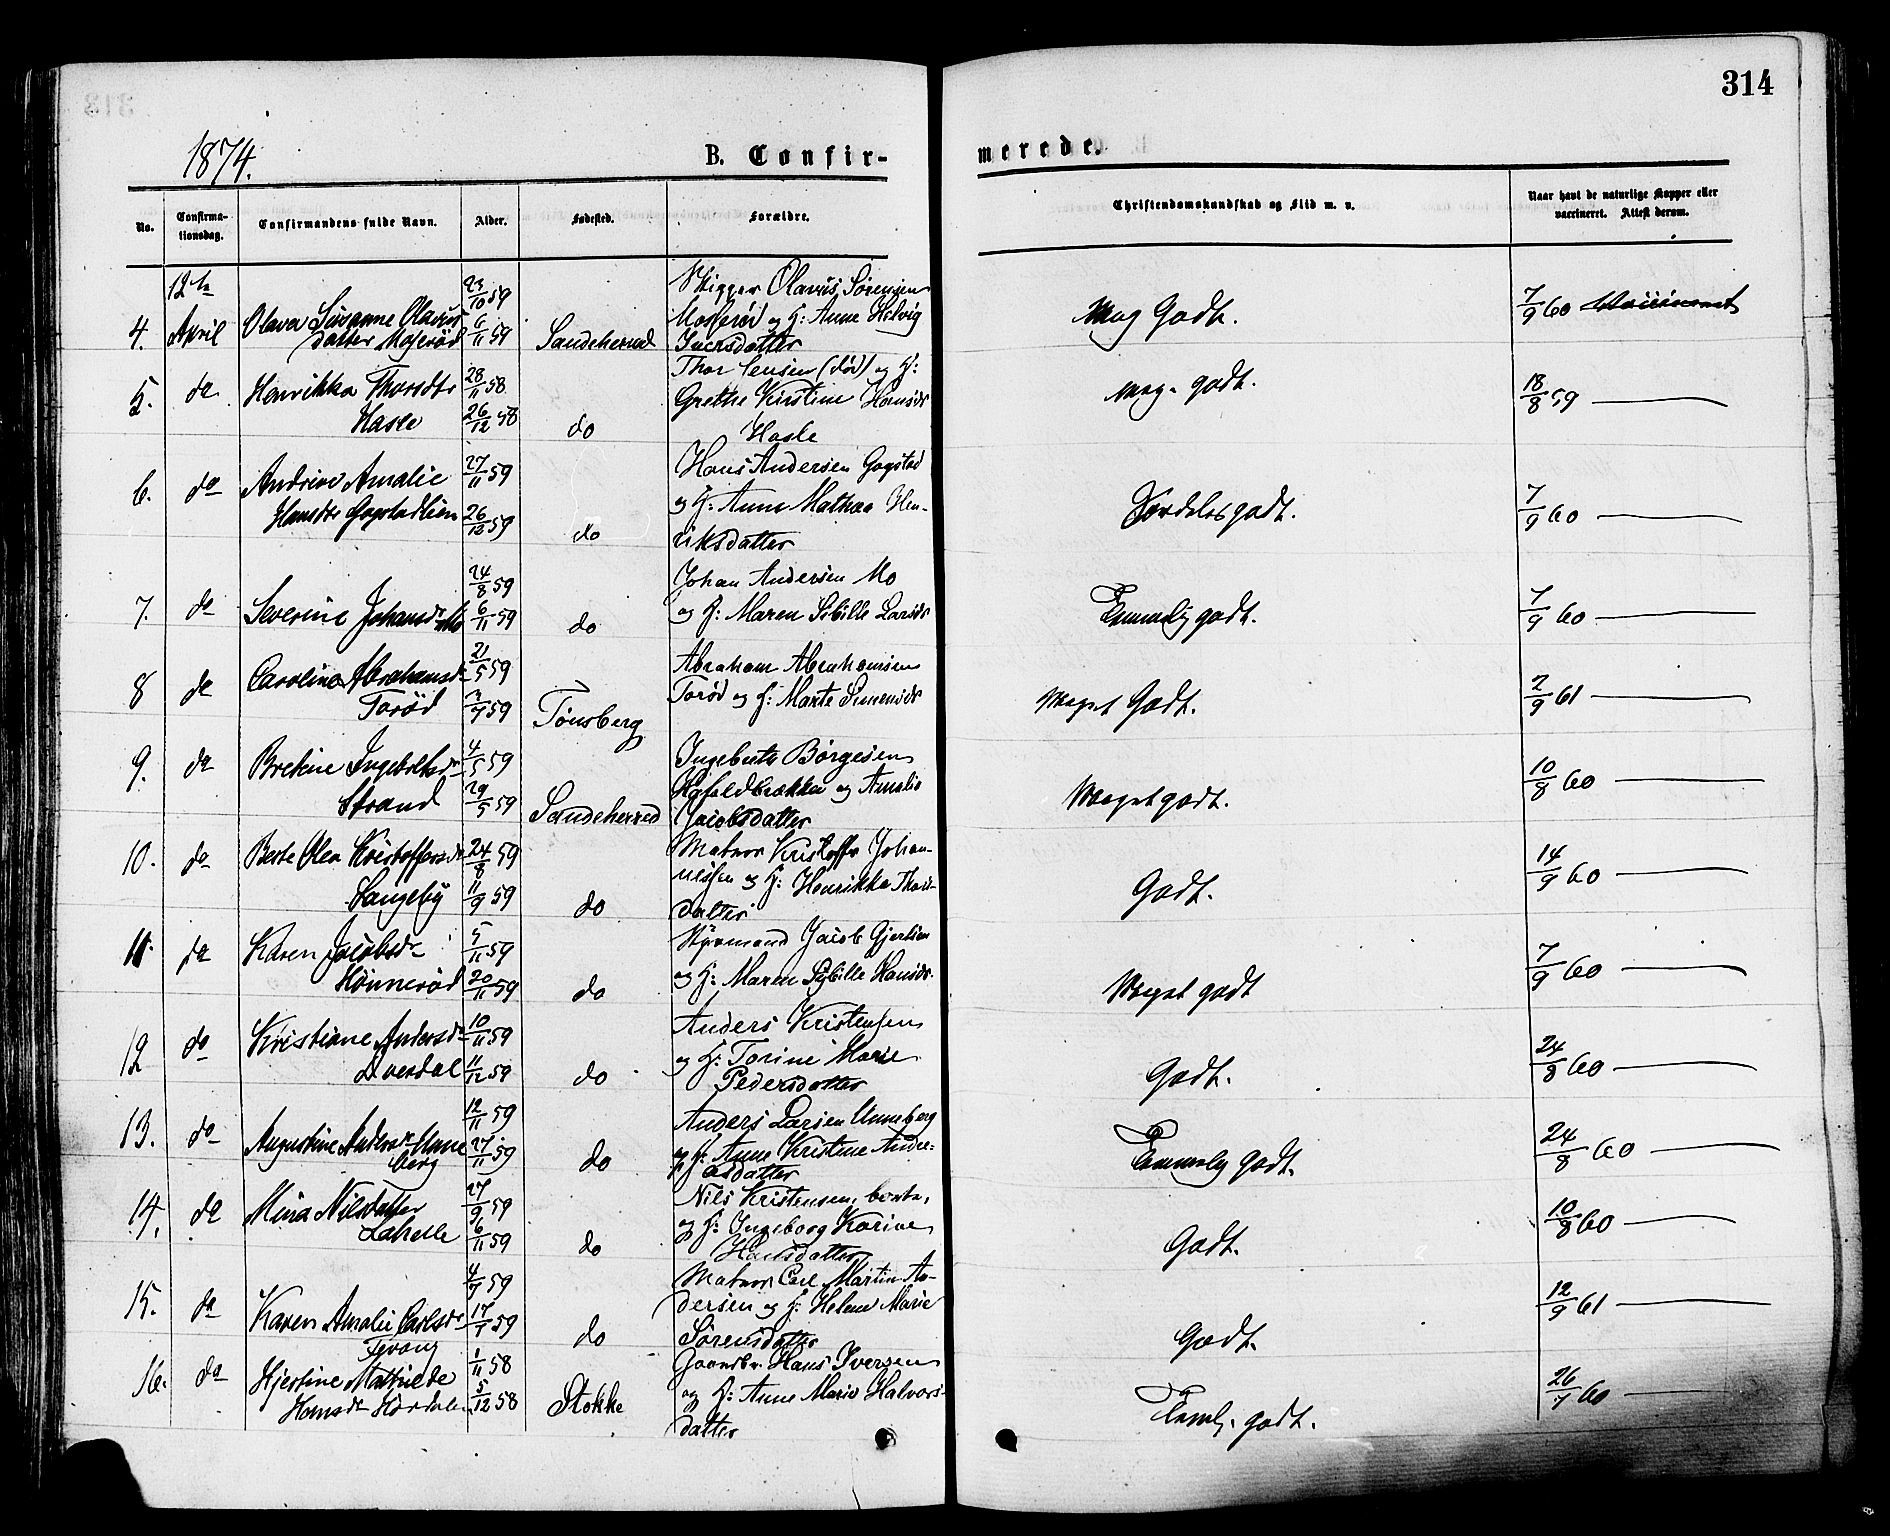 314
1874.
B. Confir-
merede.
No.
Confirma-
tionsdag.
Confirmandens fulde Navn.
Alder.
Fødested.
Forældre.
Christendomskundskab og Flid m. v.
Naar havt de naturlige Kopper eller
vaccineret. Attest derom.
12te
4. April Olava Susanne Olavus
datter Moserød
23/10 59
6/11 59
Sandeherred
Skipper Olavus Sørensen
Moserød og H: Anne Helvig
Iversdatter
Meg Godt.
7/9 60 Vaccineret
5. do Henrikka Thorsdtr
Hasle
28/11 58
26/12 58
do
Thor Jensen (død) og H:
Grethe Kirstine Hansdr
Hasle
meg. godt.
18/8 59
6. do Andrine Amalie
Hansdr Gogstadlien
27/11 59
26/12 59
do
Hans Andersen Gogstad
og H: Anne Mathea Hen-
riksdatter
Særdeles godt.
7/9 60
7. do Severine Johansdr Mo
24/8 59
6/11 59
do
Johan Andersen Mo
og H: Maren Sibille Larsdr
Temmelig godt.
7/9 60
8 do Caroline Abrahamsdr
Torød
21/5 59
3/7 59
Tønsberg
Abraham Abrahamsen
Torød og H: Marte Simensdr
Meget Godt.
2/9 61
9. do Bretine Ingebretsdr
Strand
4/5 59
29/5 59
Sandeherred
Ingebreth Børgesen
og Amalie
Jacobsdatter
Meget godt.
10/8 60
10. do Berte Olea Kristoffersdr
Langeby
24/8 59
11/9 59
do
Matros Kristoffer Johan-
nessen og H: Henrikka Thors-
datter
Godt.
14/9 60
11. do Karen Jacobsdr
Hønnerød
5/11 59
20/11 59
do
Styrmand Jacob Gjertsen
og H: Maren Sybille Hansdr
Meget godt
7/9 60
12 do Kristiane Andersdr
Dverdal
10/11 59
11/12 59
do
Anders Kristensen
og H: Torine Marie
Pedersdatter
Godt.
24/8 60
13. do Augustine Andersdr Unne
berg
12/11 59
27/11 59
do
Anders Larsen Unneberg
og H: Anne Kristine Andre-
asdatter
Temmelig godt.
24/8 60
14. do Mina Nilsdatter
Lahelle
27/9 59
6/11 59
do
Nils Kristensen, borte,
og H: Ingeborg Karine
Hansdatter
Godt.
10/8 60
15. do Karen Amalie Carlsdr
Fevang
4/7 59
17/7 59
do
Matros Carl Martin An-
dersen og H: Helene Marie
Sørensdatter
Godt.
12/9 61
16. do Hjertine Mathilde
Hansdr
1/11 58
5/12 58
Stokke
Gaardbr. Hans Iversen
og H: Anne Marie Halvors-
datter
Temlig. godt.
26/7 60